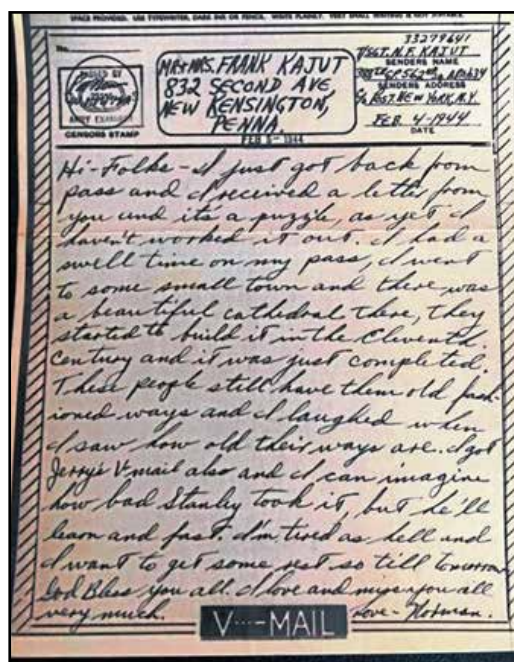 SPACE PROVIDED. USE TYPEWRITER, DARK INK OR PENCIL. WRITE PLAINLY. VERY SMALL WRITING IS NOT SUITABLE.
No.
PASSED BY
ARMY EXAMINER
CENSORS STAMP
MR & MRS. FRANK KAJUT
832 SECOND AVE
NEW KENSINGTON,
PENNA.
FEB 5 1944
33279641
T/SGT. N. F. KAJUT
SENDERS NAME
SENDERS ADDRESS
C/o POST. NEW YORK, N.Y.
FEB. 4-1944
DATE
Hi-Folks - I just got back from
pass and I received a letter from
you and its a puzzle, as yet I
haven't worked it out. I had a
swell time on my pass, I went
to some small town and there was
a beautiful cathedral there, they
started to build it in the Eleventh
Century and it was just completed.
These people still have them old fash-
ioned ways and I laughed when
I saw how old their ways are. I got
Jerry's V-mail also and I can imagine
how bad Stanley took it, but he'll
learn and fast. I'm tired as hell and
I want to get some rest so till tomorrow
God Bless you all. I love and miss you all
very much. Love - Norman.
V···-MAIL